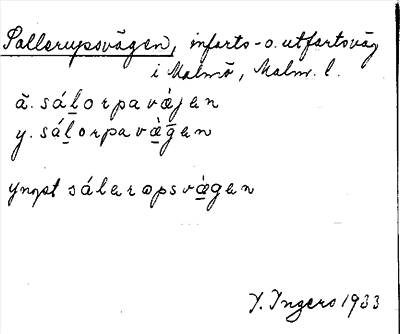 Sallerupsvägen, infarts- o. utfartsväg
i Malmö, Malm. l.
ä. sáḻorpavàjen
y. sáḻorpavà̱gen
yngst sálerɔpsvà̱gen
I. Ingers 1933